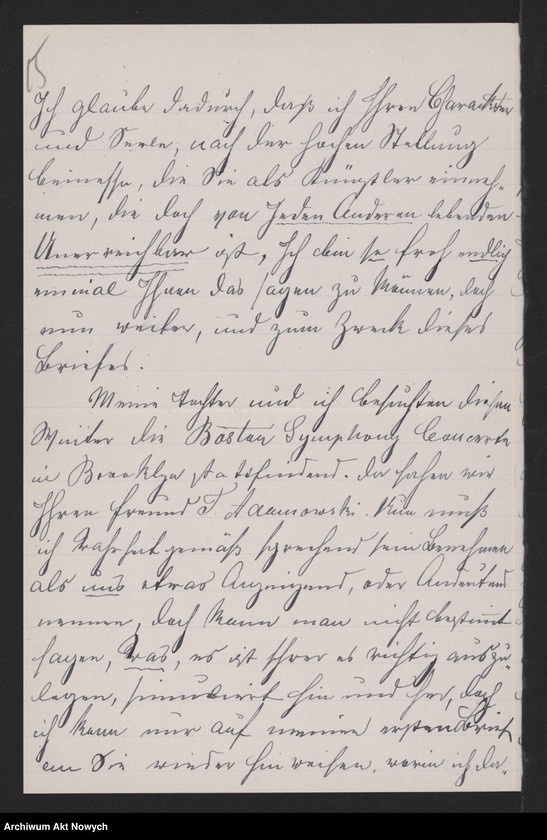 5
Ich glaube dadurch, daß ich Ihren Charakter
und Seele, nach der hohen Stellung
beimesse, die Sie als Künstler einneh-
men, die doch von Jeden Anderen lebenden
Unerreichbar ist, Ich bin so froh endlich
einmal Ihnen das sagen zu können, doch
nun weiter, und zum Zweck dieses
Briefes.
Meine Tochter und ich besuchten diesen
Winter die Boston Symphony Concerte
in Brooklyn statsfindend. Da sahen wir
Ihren Freund T. Adamowski. Nun muß
ich Wahrheit gemäß sprechend sein Benehmen
als uns etwas Anzeigend, oder Andeutend
nennen, doch kann man nicht bestimmt
sagen, Was, es ist schwer es richtig auszu-
legen, hin und her, doch
ich kann nur auf meinen ersten Brief
an Sie wieder hinweisen, worin ich da-
Archiwum Akt Nowych